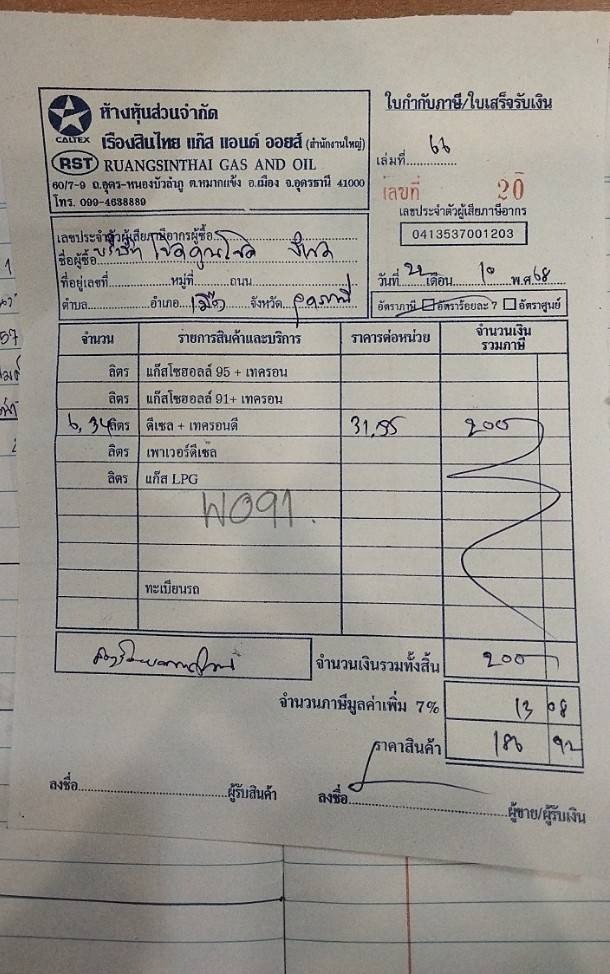 ห้างหุ้นส่วนจำกัด
CALTEX
เรืองสินไทย แก๊ส แอนด์ ออยส์ (สำนักงานใหญ่)
RST RUANGSINTHAI GAS AND OIL
60/7-9 ถ.อุดร-หนองบัวลำภู ต.หมากแข้ง อ.เมือง จ.อุดรธานี 41000
โทร. 099-4638889
ใบกำกับภาษี/ใบเสร็จรับเงิน
เล่มที่ 66
เลขที่ 20
เลขประจำตัวผู้เสียภาษีอากร
0413537001203
เลขประจำตัวผู้เสียภาษีอากรผู้ซื้อ
ชื่อผู้ซื้อ บริษัท โชคคูณโชค
ที่อยู่เลขที่ หมู่ที่ ถนน
ตำบล อำเภอ เมือง จังหวัด อุดรธานี
วันที่ 22 เดือน 10 พ.ศ. 68
อัตราภาษี อัตราร้อยละ 7 อัตราศูนย์
จำนวน รายการสินค้าและบริการ ราคารต่อหน่วย จำนวนเงินรวมภาษี
ลิตร แก๊สโซฮอลล์ 95 + เทครอน
ลิตร แก๊สโซฮอลล์ 91+ เทครอน
6,34 ลิตร ดีเซล + เทครอนดี 31.55 200
ลิตร เพาเวอร์ดีเซล
ลิตร แก๊ส LPG
W091.
ทะเบียนรถ
สองร้อยบาทถ้วน จำนวนเงินรวมทั้งสิ้น 200
จำนวนภาษีมูลค่าเพิ่ม 7% 13 08
ราคาสินค้า 186 92
ลงชื่อ ผู้รับสินค้า
ลงชื่อ ผู้ขาย/ผู้รับเงิน